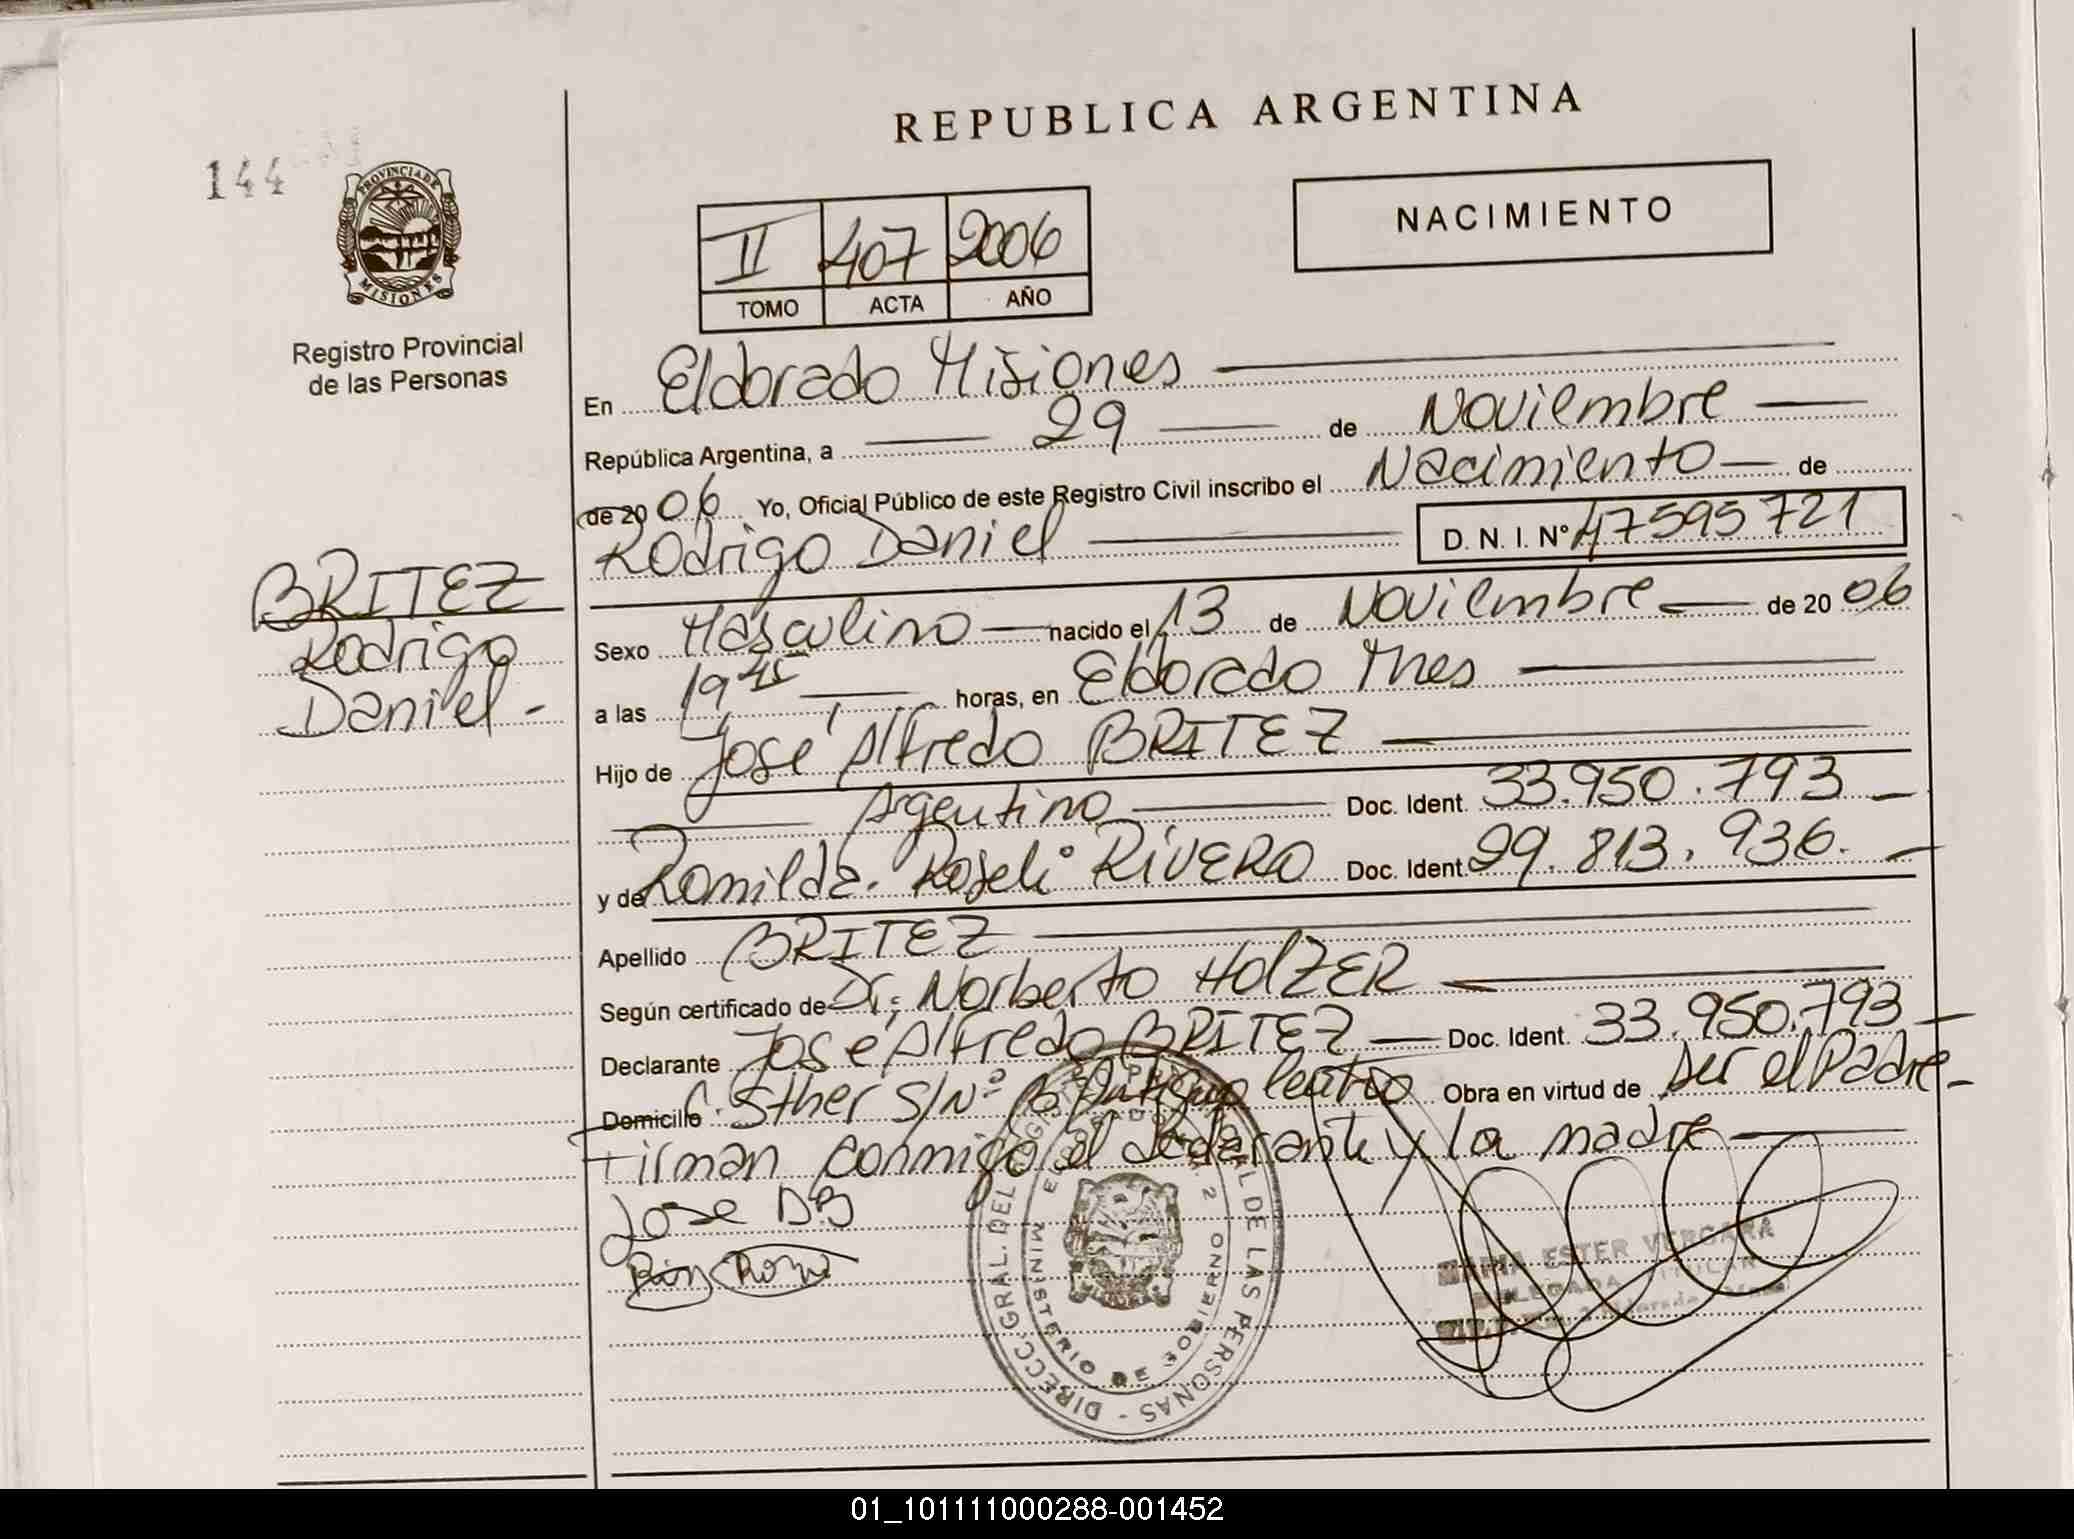 REPUBLICA ARGENTINA
144
PROVINCIA DE MISIONES
NACIMIENTO
II 407 2006
TOMO ACTA AÑO
Registro Provincial
de las Personas
En Eldorado Misiones
República Argentina, a 29 de Noviembre
de 2006 Yo, Oficial Público de este Registro Civil inscribo el Nacimiento de
Rodrigo Daniel D. N. I. Nº 47595721
BRITEZ
Rodrigo
Daniel -
Sexo Masculino nacido el 13 de Noviembre de 2006
a las 19 45 horas, en Eldorado Mnes
Hijo de José Alfredo BRITEZ
Argentino Doc. Ident. 33.950.793
y de Romilda Roseli RIVERO Doc. Ident. 29.813.936.
Apellido BRITEZ
Según certificado de Dr. Norberto HOLZER
Declarante José Alfredo BRITEZ Doc. Ident. 33.950.793
Domicilio Esther S/Nº Bº Obra en virtud de ser el Padre
Firman conmigo el declarante y la madre
Jose D.B
DIRECC. GRAL. DEL DE LAS PERSONAS
MINISTERIO DE GOBIERNO
MARIA ESTER VERGARA
DELEGADA TITULAR
01_101111000288-001452